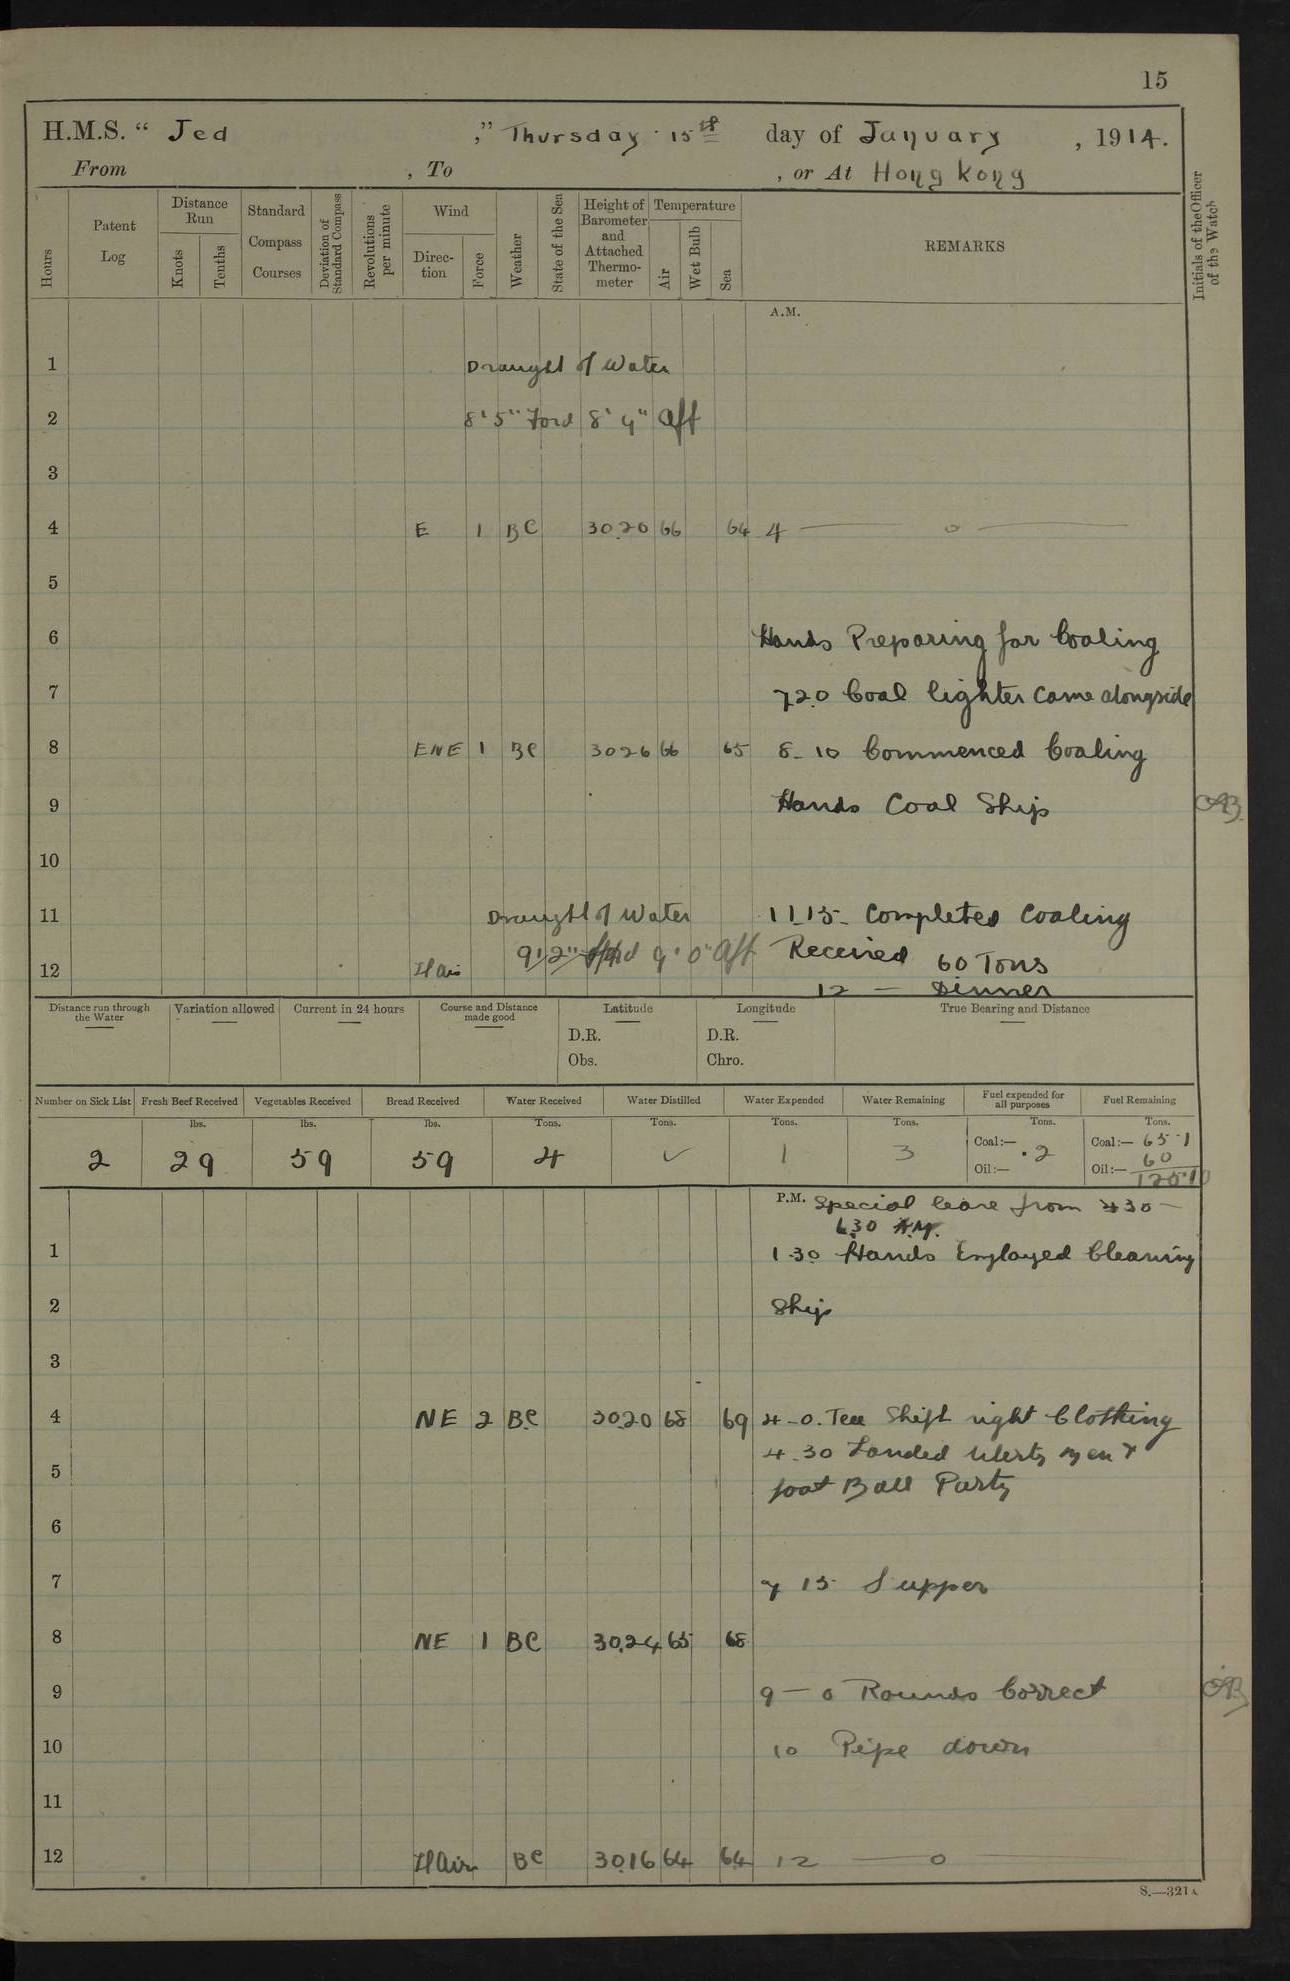 15
H.M.S. “ Jed ,” Thursday 15th day of January , 1914.
From , To , or At Hong Kong
Hours
Patent Log
Distance Run
Knots
Tenths
Standard Compass Courses
Deviation of Standard Compass
Revolutions per minute
Wind
Direc-tion
Force
Weather
State of the Sea
Height of Barometer and Attached Thermo-meter
Temperature
Air
Wet Bulb
Sea
REMARKS
Initials of the Officer of the Watch
A.M.
1 Draught of Water
2 8' 5" Ford 8' 9" Aft
3
4 E 1 BC 30.20 66 64 4 — 0 —
5
6 Hands Preparing for Coaling
7 7 20 Coal lighter came alongside
8 ENE 1 BC 30 26 66 65 8 - 10 Commenced Coaling
9 Hands Coal Ship
10
11 Draught of Water 11.15 - Completed Coaling
9' 2" 9' 0" Aft Received 60 Tons
12
12 — Dinner
Distance run through the Water
Variation allowed
Current in 24 hours
Course and Distance made good
Latitude
D.R.
Obs.
Longitude
D.R.
Chro.
True Bearing and Distance
Number on Sick List
Fresh Beef Received
Vegetables Received
Bread Received
Water Received
Water Distilled
Water Expended
Water Remaining
Fuel expended for all purposes
Fuel Remaining
lbs. lbs. lbs. Tons. Tons. Tons. Tons. Tons. Tons.
2 29 59 59 4 ✓ 1 3
Coal:— .2
Oil:—
Coal:— 65.1
60
Oil:— 125.1
P.M. Special leave from 430 —
6.30
1 1.30 Hands Employed Cleaning
2 Ship
3
4 NE 2 BC 30.20 68 69 4 - 0. Tea Shift night Clothing
4.30 Landed liberty men &
5
foot Ball Party
6
7 7 15 Supper
8 NE 1 BC 30.24 65 68
9 9 — 0 Rounds Correct
10 10 Pipe down
11
12 BC 30.16 64 64 12 — 0 —
S.—321A